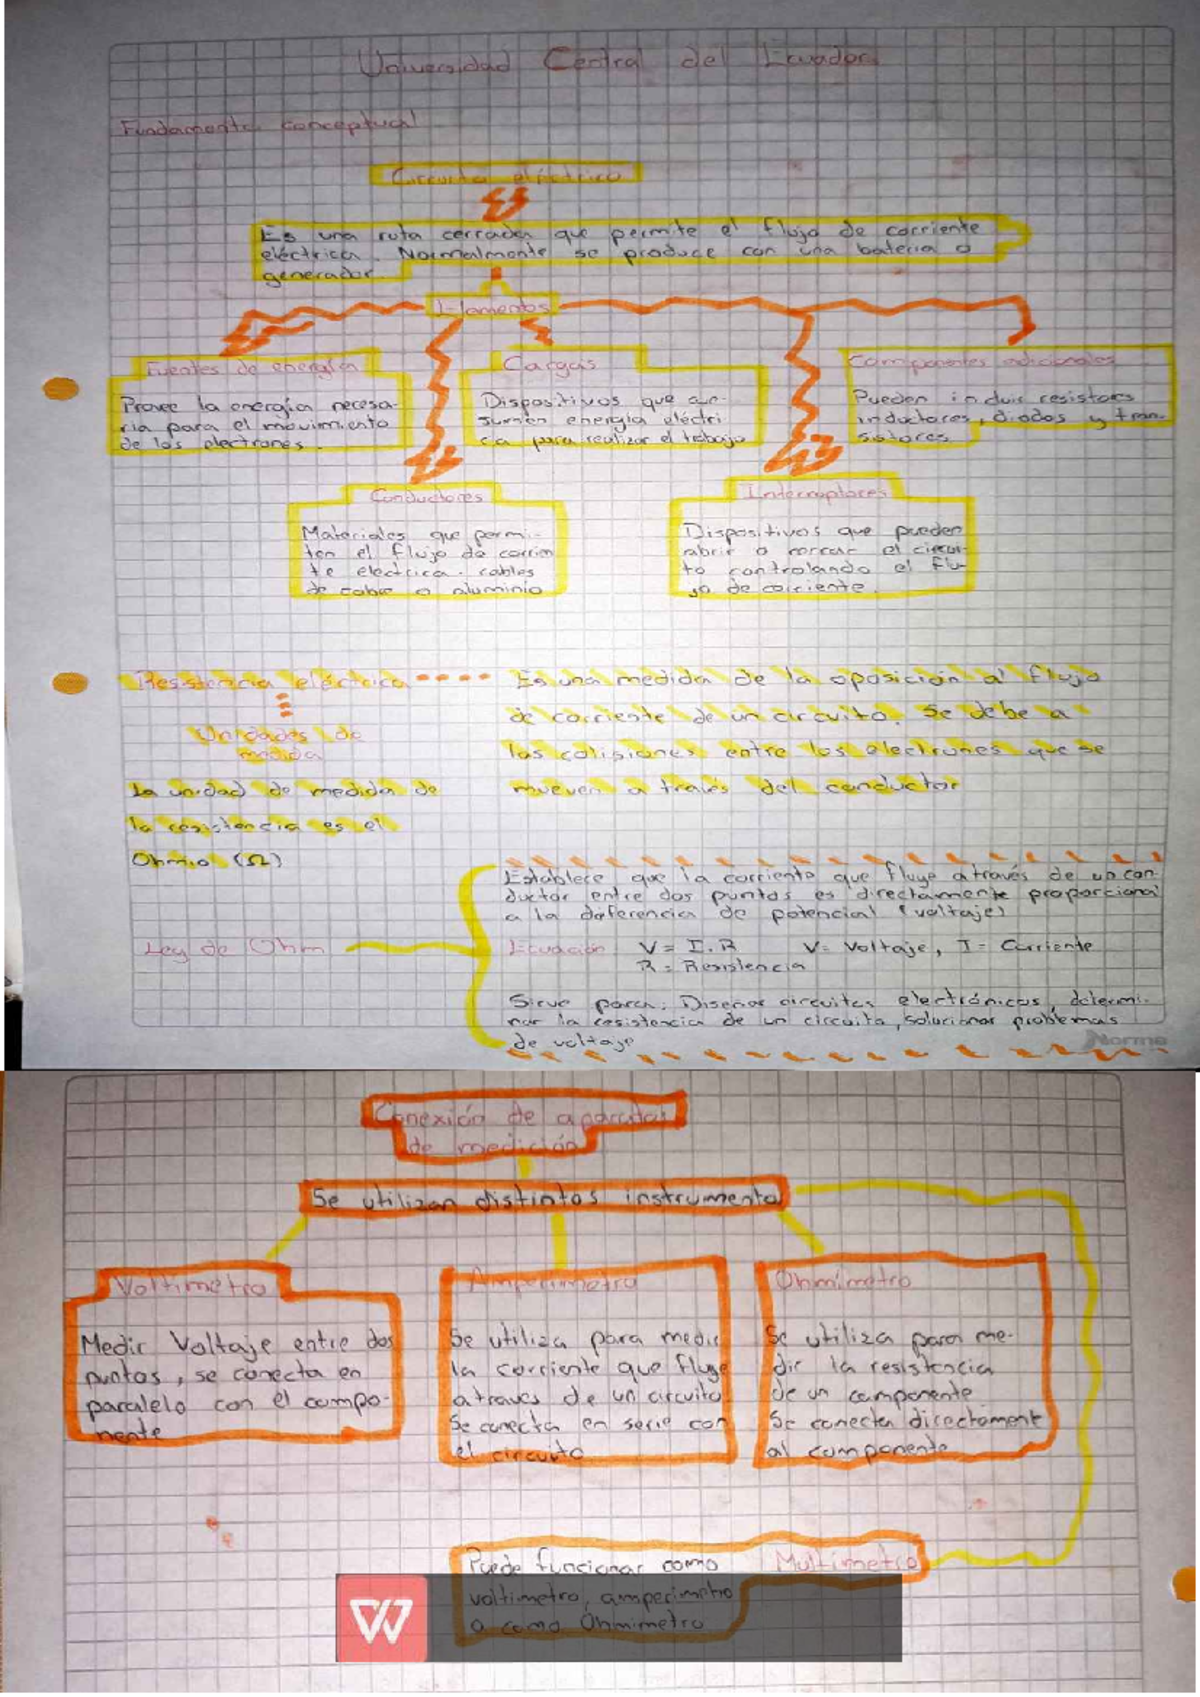 Universidad Central del Ecuador
Fundamento conceptual
Circuito eléctrico
Es una ruta cerrada que permite el flujo de corriente
eléctrica. Normalmente se produce con una bateria o
generador
Elementos
Fuentes de energía
Provee la energía necesa-
ria para el movimiento
de los electrones.
Cargas
Dispositivos que con-
sumen energía eléctri
cia para realizar el trabajo
Componentes adicionales
Pueden incluir resistores
inductores, diodos y tran-
sistores
Conductores
Materiales que permi-
ten el flujo de corrien
te electrica. cables
de cobre o aluminio
Interruptores
Dispositivos que pueden
abrir o cerrar el circui-
to controlando el flu-
jo de corriente.
Resistencia eléctrica
Es una medida de la oposición al flujo
de corriente de un circuito. Se debe a
las colisiones entre los electrones que se
mueven a través del conductor
Unidades de
medida
La unidad de medida de
la resistencia es el
Ohmio (Ω)
Ley de Ohm
Establece que la corriente que fluye a través de un con-
ductor entre dos puntos es directamente proporcional
a la diferencia de potencial (voltaje)
Ecuación V = I.R V= Voltaje, I = Corriente
R = Resistencia
Sirve para: Diseñar circuitos electrónicos, determi-
nar la resistencia de un circuito, solucionar problemas
de voltaje
Norma
Conexión de aparatos
de medición
Se utilizan distintos instrumento
Voltimetro
Medir Voltaje entre dos
puntos, se conecta en
paralelo con el compo-
nente
Amperimetro
Se utiliza para medir
la corriente que fluye
a traves de un circuito
Se conecta en serie con
el circuito
Ohmímetro
Se utiliza para me-
dir la resistencia
de un componente
Se conecta directament
al componente
Multimetro
Puede funcionar como
voltimetro, amperimetro
o como Ohmimetro